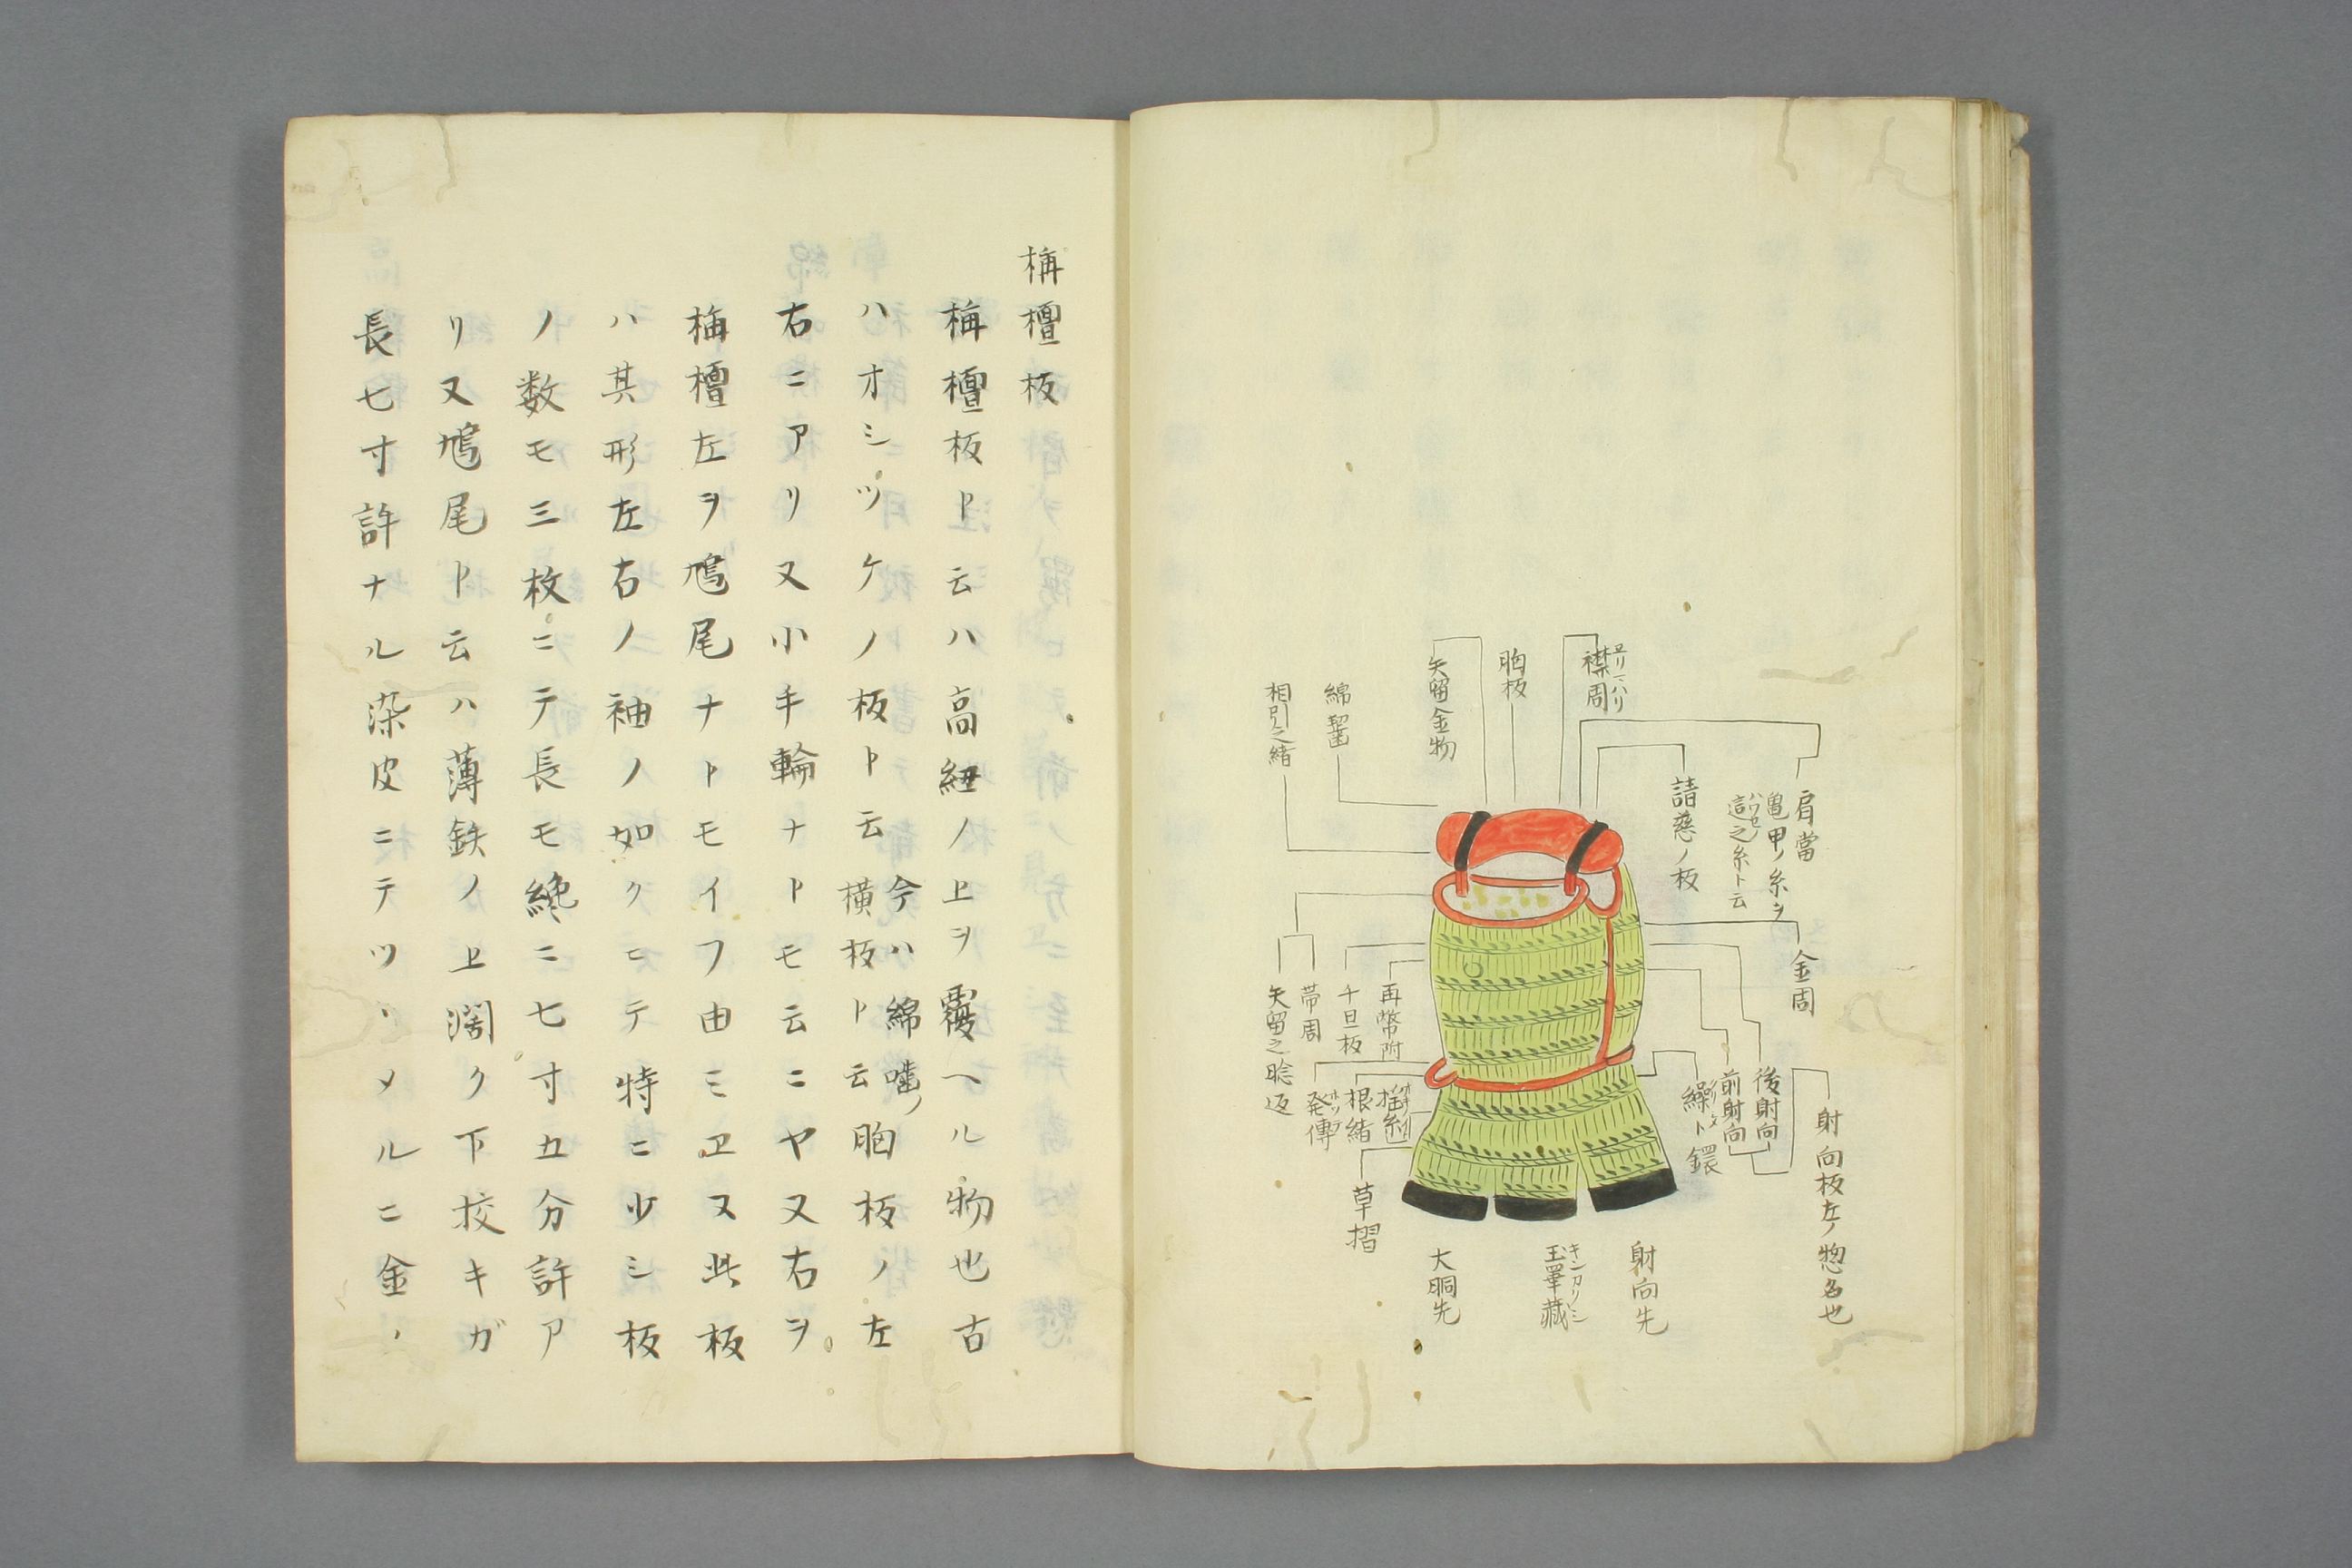 襟周
ヱリマハリ
胸板
矢留金物
綿齧
相引之緒
肩當
亀甲ノ糸ヲ
這之糸ト云
請慈ノ板
金周
再幣附
千旦板
帯周
矢留之
射向板左ノ惣名也
後射向
前射向
繰
鐶
根緒
発傳
草摺
射向先
大胴先
栴檀板
栴檀板ト云ハ高紐ノ上ヲ覆ヘル物也古
ハオシツケノ板ト云
今ハ綿噛ノ
横板ト云
胸板ノ左
右ニアリ又小手輪ナトモ云ニヤ又右ヲ
栴檀左ヲ鳩尾ナトモイフ由ミヱ又此板
ハ其形左右ノ袖ノ如クニテ特ニ少シ板
ノ数モ三枚ニテ長モ纔ニ七寸五分許ア
リ又鳩尾ト云ハ薄鉄ノ上濶ク下挍キガ
長七寸許ナル染皮ニテツヽメルニ金ノ